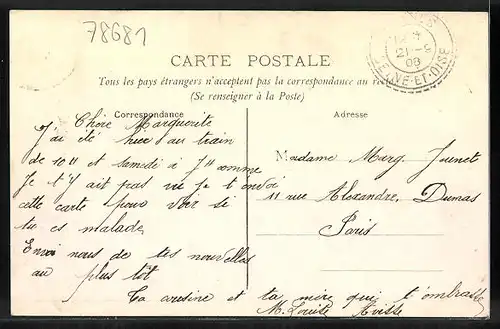 78681
CARTE POSTALE
Tous les pays étrangers n'acceptent pas la correspondance au
(Se renseigner à la Poste)
Correspondance
Adresse
21 - 9
08
SEINE-ET-OISE
Chère Marguerite
J'ai été hier au train
de 10 et samedi à comme
Je t'y ait pas vu Je t'envoi
cette carte pour voir si
tu es malade
Envoi nous de tes nouvelles
au plus tôt
Ta cousine et ta mère qui t'embrasse
M. Louise
Madame Marg.
11 rue Alexandre Dumas
Paris